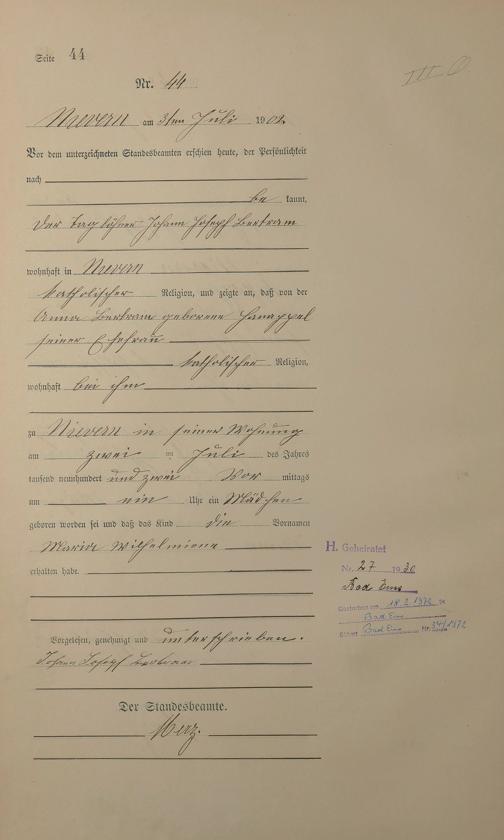 Seite 44
Nr. 44
III O
Nievern am 3ten Juli 1902
Vor dem unterzeichneten Standesbeamten erschien heute, der Persönlichkeit
nach
be kannt,
der Taglöhner Johann Joseph Bertram
wohnhaft in Nievern
katholischer Religion, und zeigte an, daß von der
Anna Bertram geborene Hanappel
seiner Ehefrau
katholischer Religion,
wohnhaft bei ihm
zu Nievern in seiner Wohnung
am zwei ten Juli des Jahres
tausend neunhundert und zwei Vor mittags
um ein Uhr ein Mädchen
geboren worden sei und daß das Kind die Vornamen
Maria Wilhelmine
erhalten habe.
H. Geheiratet
Nr. 27 1930
Bad Ems
Gestorben am 18.2.1972 in
Bad Ems
StAmt Bad Ems Nr. 34/1972
Vorgelesen, genehmigt und unterschrieben.
Johann Joseph Bertram
Der Standesbeamte.
Merz.